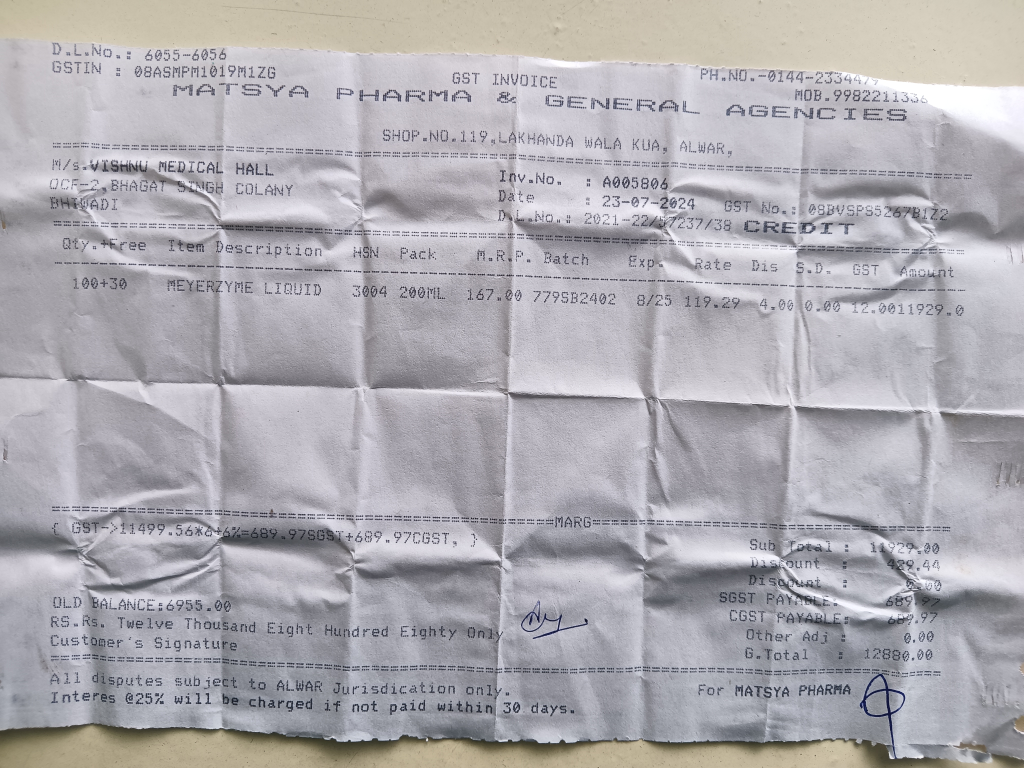 D.L.No.: 6055-6056
GSTIN : 08ASMPM1019M1ZG GST INVOICE PH.NO.-0144-2334479
MOB.9982211336
MATSYA PHARMA & GENERAL AGENCIES
SHOP.NO.119,LAKHANDA WALA KUA, ALWAR,
M/s.VISHNU MEDICAL HALL Inv.No. : A005806
OCF-2,BHAGAT SINGH COLANY Date : 23-07-2024 GST No.: 08BVSPS5267B1Z2
BHIWADI D.L.No.: 2021-22/57237/38 CREDIT
Qty.+Free Item Description HSN Pack M.R.P. Batch Exp. Rate Dis S.D. GST Amount
100+30 MEYERZYME LIQUID 3004 200ML 167.00 779SB2402 8/25 119.29 4.00 0.00 12.0011929.0
MARG
{ GST->11499.56*6+6%=689.97SGST+689.97CGST, }
Sub Total : 11929.00
Discount : 429.44
Discount : 0.00
SGST PAYABLE: 689.97
OLD BALANCE:6955.00 CGST PAYABLE: 689.97
RS.Rs. Twelve Thousand Eight Hundred Eighty Only Other Adj : 0.00
Customer's Signature G.Total : 12880.00
All disputes subject to ALWAR Jurisdication only. For MATSYA PHARMA
Interes @25% will be charged if not paid within 30 days.